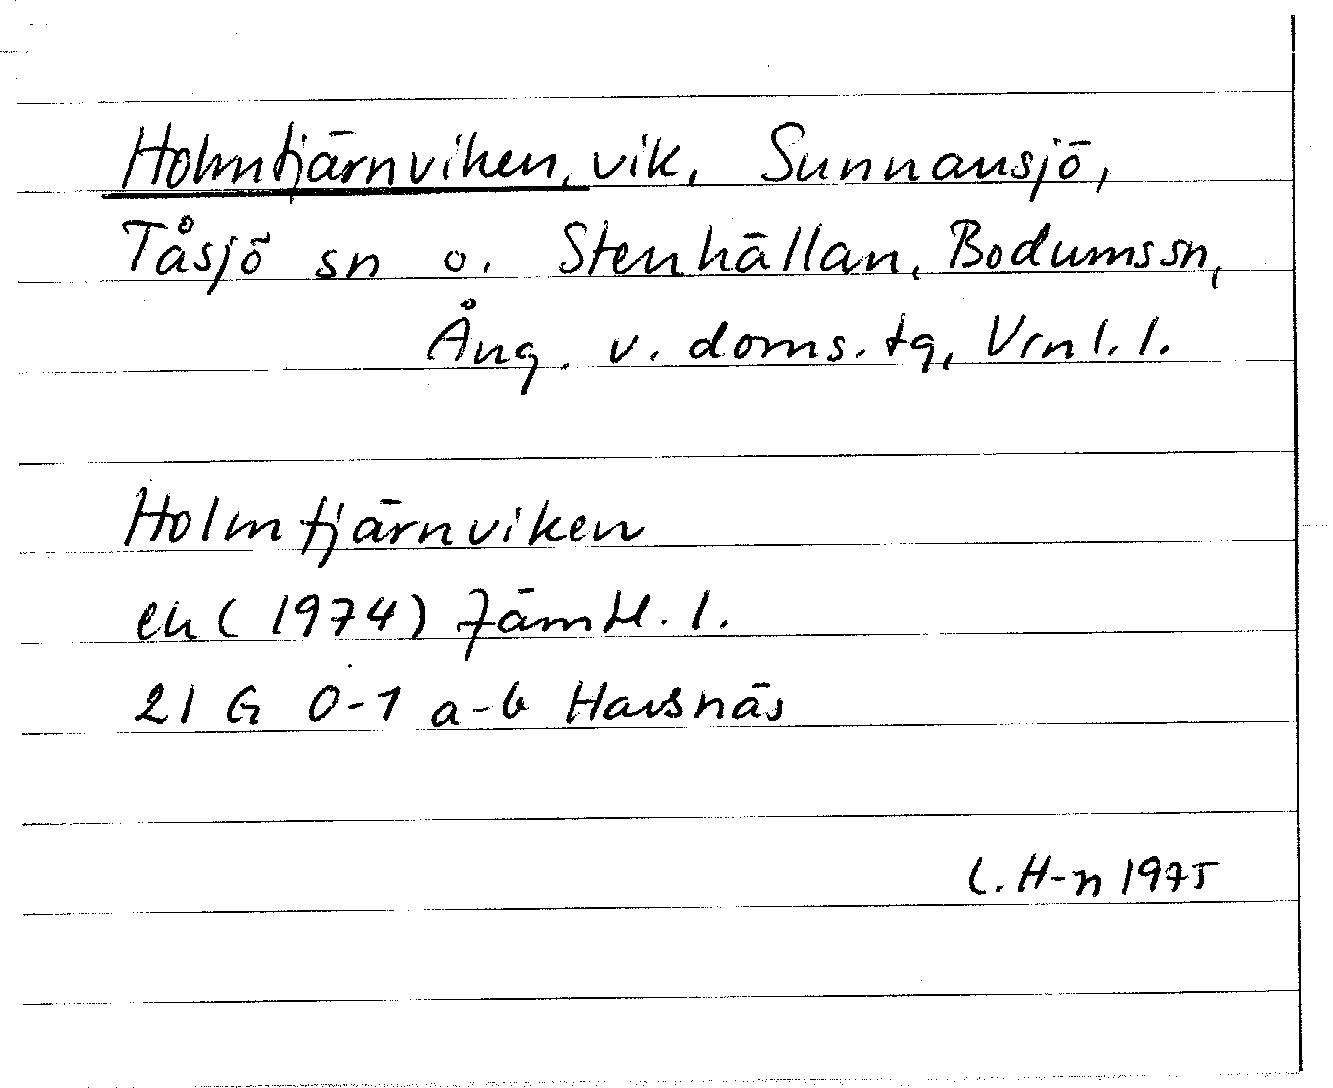 Holmtjärnviken, vik, Sunnansjö,
Tåsjö sn o. Stenhällan, Bodums sn,
Ång. v. doms. tg, Vrnl. l.
Holmtjärnviken
ek (1974) Jämtl. l.
21 G 0-1 a-b Havsnäs
C. H-n 1975